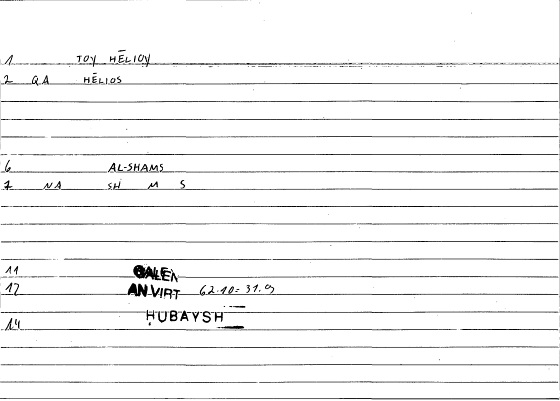 1 TOY HĒLIOY
2 QA HĒLIOS
6 AL-SHAMS
7 NA SH M S
11 GALEN
12 AN.VIRT 62.10=31.9
14 ḤUBAYSH